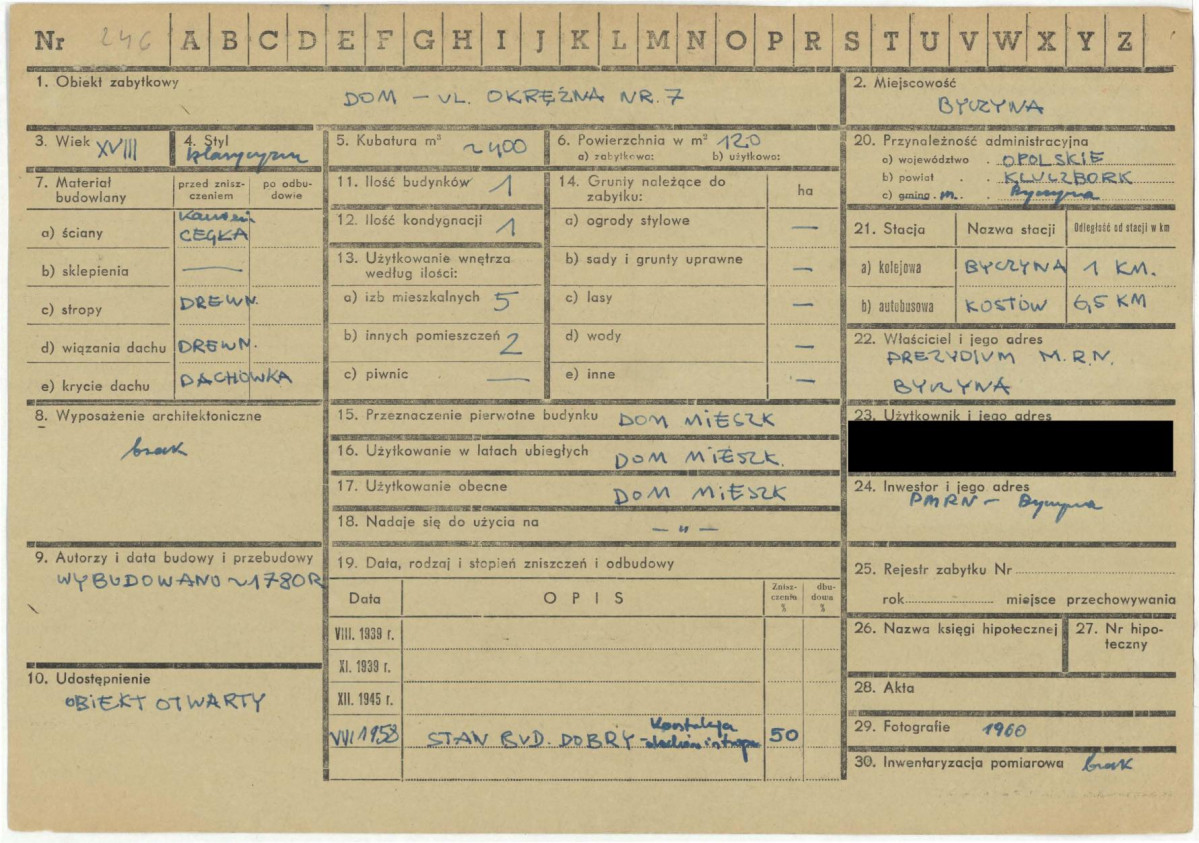 Nr 246 A B C D E F G H I J K L M N O P R S T U V W X Y Z
1. Obiekt zabytkowy
DOM – UL. OKRĘŻNA NR. 7
2. Miejscowość
BYCZYNA
3. Wiek XVIII
4. Styl
klasycyzm
5. Kubatura m³ ~400
6. Powierzchnia w m² 120
a) zabytkowa: b) użytkowa:
7. Materiał budowlany
przed zniszczeniem
po odbudowie
a) ściany
CEGŁA
b) sklepienia —
c) stropy DREWN.
d) wiązania dachu DREWN.
e) krycie dachu DACHÓWKA
8. Wyposażenie architektoniczne
brak
9. Autorzy i data budowy i przebudowy
WYBUDOWANO ~1780R
10. Udostępnienie
OBIEKT OTWARTY
11. Ilość budynków 1
12. Ilość kondygnacji 1
13. Użytkowanie wnętrza
według ilości:
a) izb mieszkalnych 5
b) innych pomieszczeń 2
c) piwnic —
14. Grunty należące do
zabytku:
ha
a) ogrody stylowe —
b) sady i grunty uprawne —
c) lasy —
d) wody —
e) inne —
15. Przeznaczenie pierwotne budynku DOM MIESZK
16. Użytkowanie w latach ubiegłych DOM MIESZK.
17. Użytkowanie obecne DOM MIESZK
18. Nadaje się do użycia na — " —
19. Data, rodzaj i stopień zniszczeń i odbudowy
Data
OPIS
Zniszczenia %
dbudowa %
VIII. 1939 r.
XI. 1939 r.
XII. 1945 r.
1958 STAN BUD. DOBRY – 50
20. Przynależność administracyjna
a) województwo . OPOLSKIE
b) powiat . KLUCZBORK
c) gmina . m. . Byczyna
21. Stacja
Nazwa stacji
Odległość od stacji w km
a) kolejowa BYCZYNA 1 KM.
b) autobusowa KOSTÓW 6,5 KM
22. Właściciel i jego adres
PREZYDIUM M.R.N.
BYCZYNA
23. Użytkownik i jego adres
24. Inwestor i jego adres
PMRN – Byczyna
25. Rejestr zabytku Nr
rok miejsce przechowywania
26. Nazwa księgi hipotecznej
27. Nr hipoteczny
28. Akta
29. Fotografie 1960
30. Inwentaryzacja pomiarowa brak